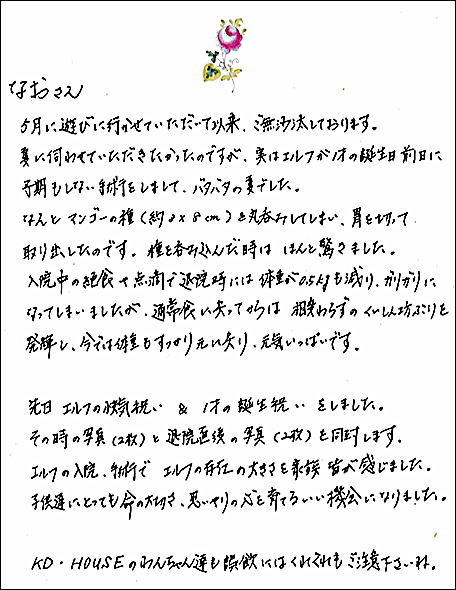 なおさん
5月に遊びに行かせていただいて以来、ご無沙汰しております。
夏に伺わせていただきたかったのですが、実はエルフが1才の誕生日前日に
予期もしない手術をしまして、バタバタの夏でした。
なんと マンゴーの種(約4×8cm)を丸呑みしてしまい、胃を切って
取り出したのです。種を呑み込んだ時は ほんと驚きました。
入院中の絶食や点滴で退院時には 体重が0.5kgも減り、ガリガリに
なってしまいましたが、通常食に戻ってからは 相変わらずの くいしん坊ぶりを
発揮し、今では体重もすっかり元に戻り、元気いっぱいです。
先日 エルフの快気祝い & 1才の誕生祝い をしました。
その時の写真(2枚)と 退院直後の写真(2枚)を同封します。
エルフの入院、手術で エルフの存在の大きさを家族 皆が感じました。
子供達にとっても命の大切さ、思いやりの心を育てるいい機会になりました。
KD・HOUSEのわんちゃん達も誤飲にはくれぐれもご注意下さいね。